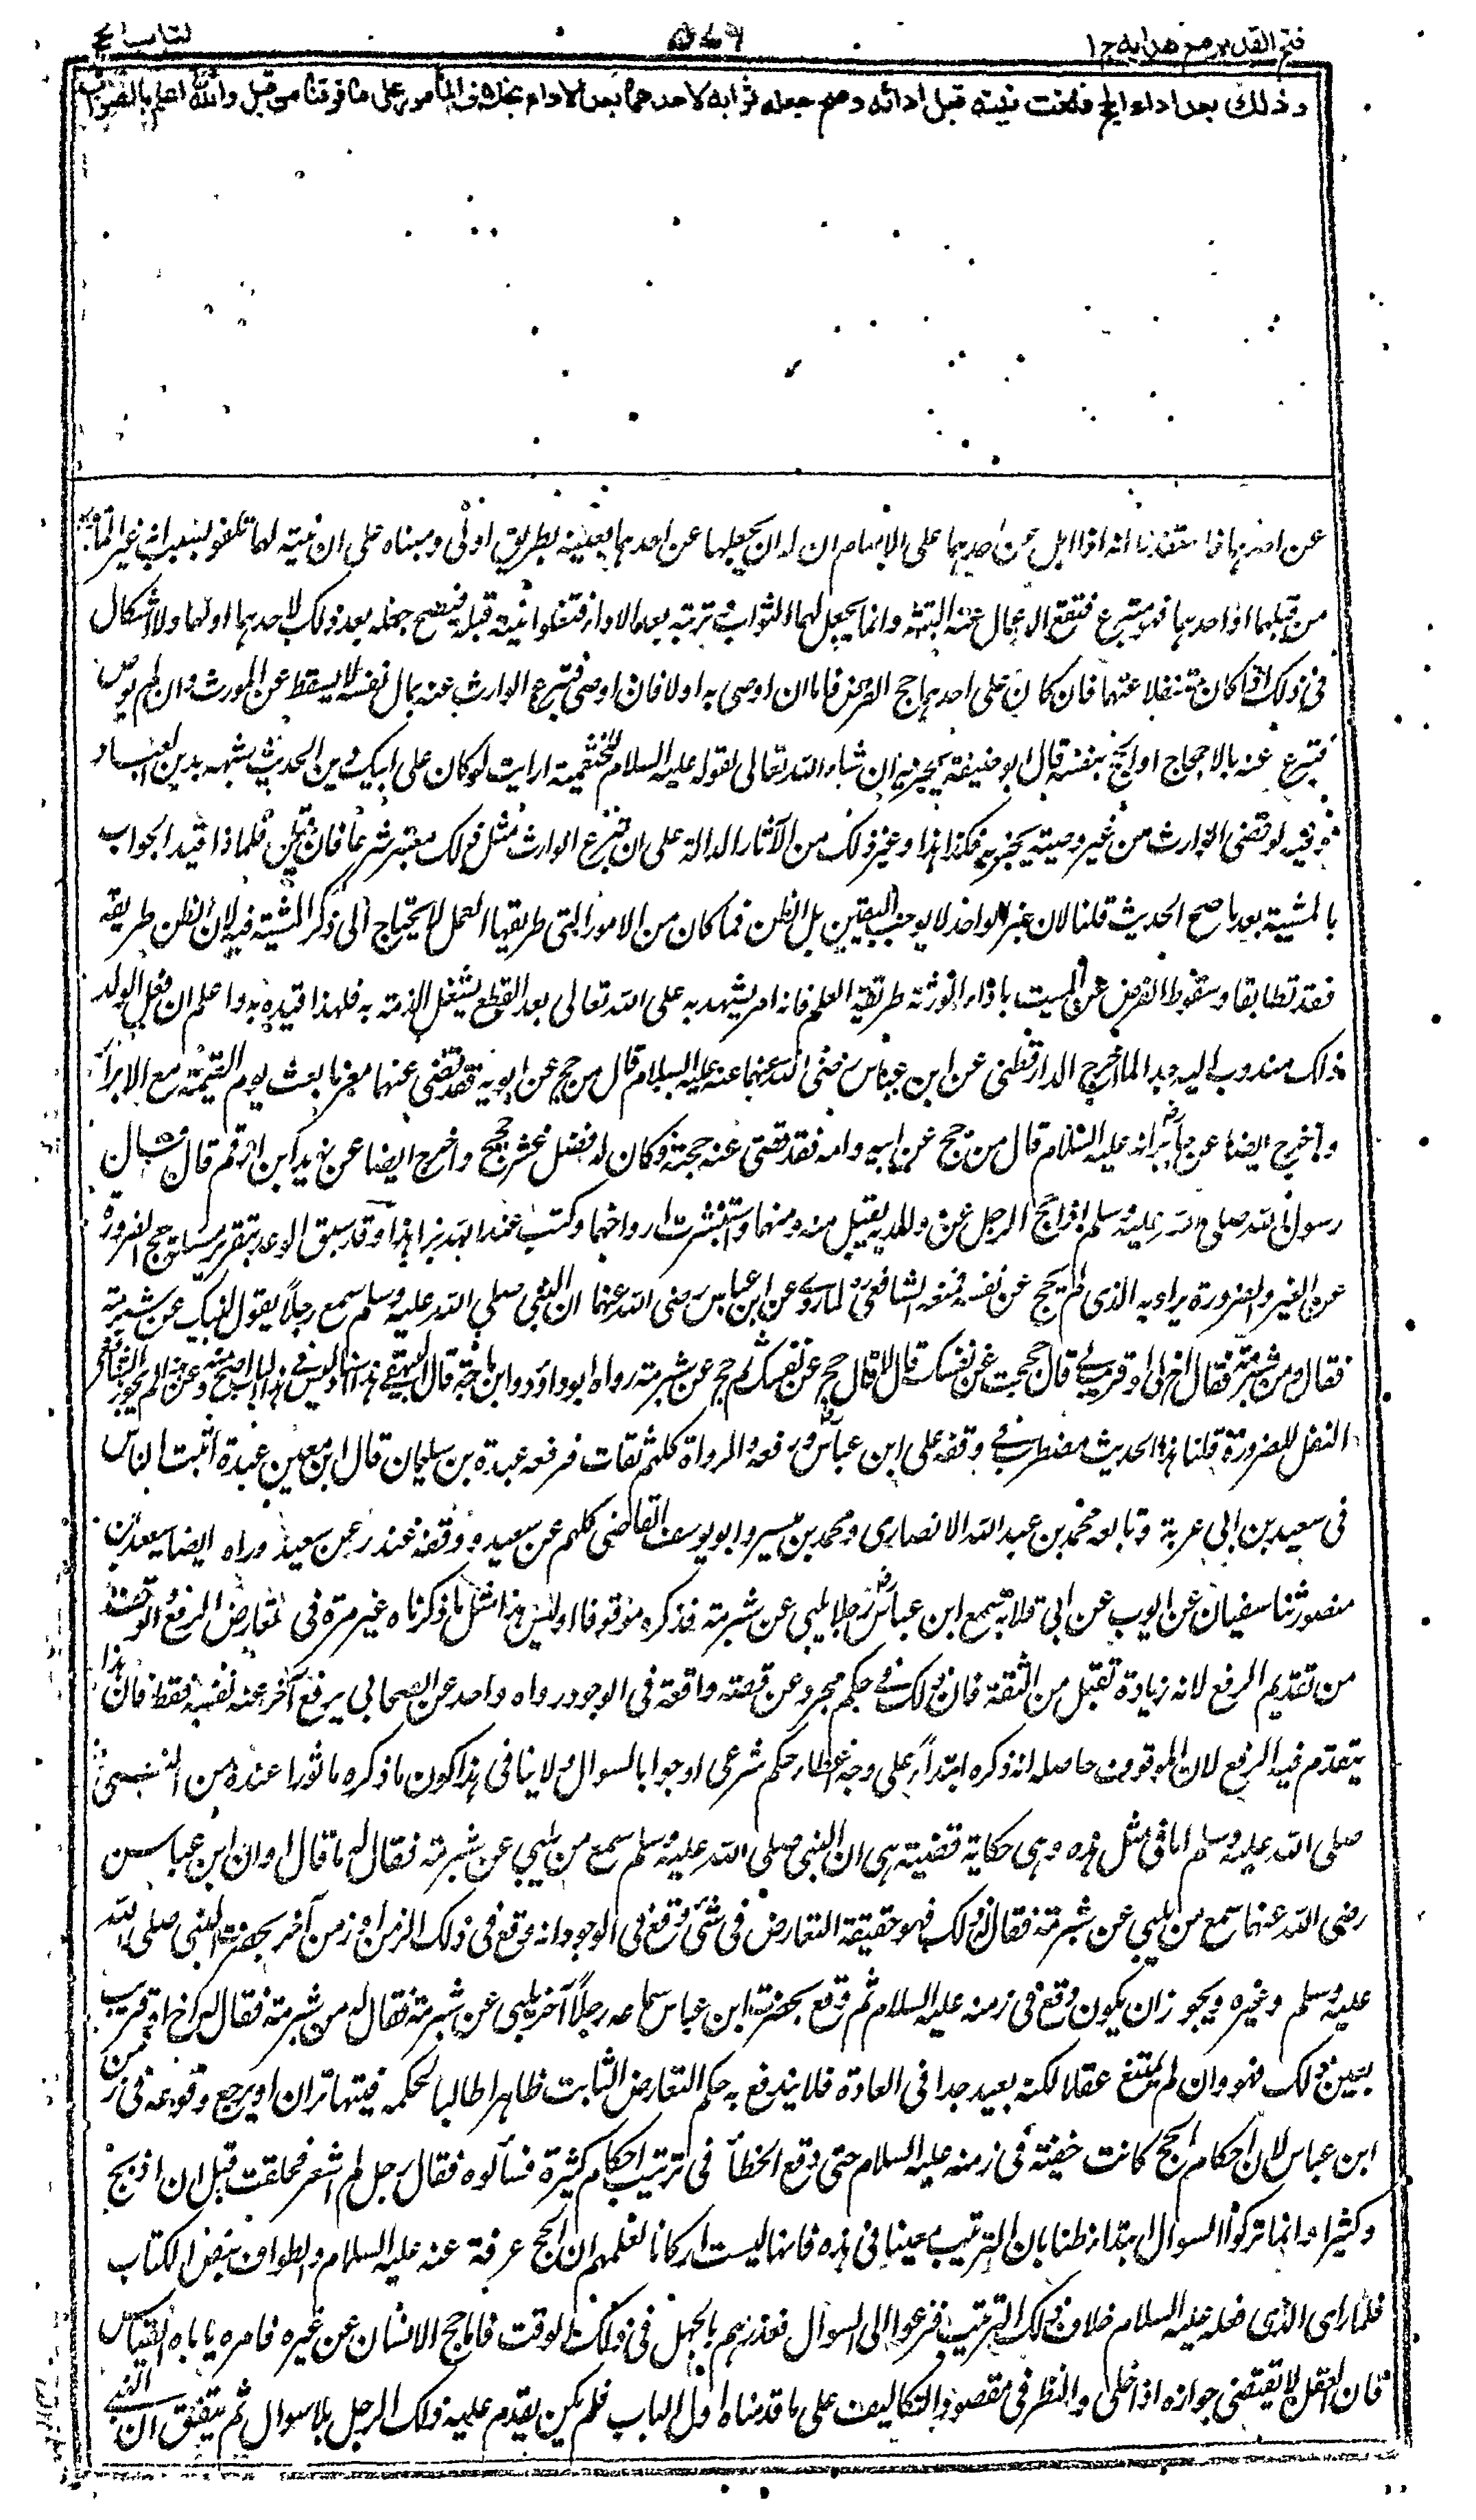 فتح القدير مع هدايه ج ١
٥٤٩
كتاب الحج
وذلك بعد اداء الحج فلغت نيته قبل ادائه وصح جعله ثوابه لاحدهما بعد الاداء بخلاف المأمور على ما فرقنا من قبل والله اعلم بالصواب
عن احدهما فاستفدنا انه اذا اهل عن احدهما على الابهام ان له ان يجعلها عن احدهما بعينه بطريق اولى ومبناه على ان نيته لهما تلغو لسبب انه غير مأمور
من قبلهما او احدهما فهو متبرع فتقع الاعمال عنه البتة وانما يجعل لهما الثواب وترتبه بعد الاداء فتلغو نيته قبله فيصح جعله بعد ذلك لاحدهما اولهما ولا اشكال
فى ذلك اذا كان متنفلا عنهما فان كان على احدهما حج الفرض فاما ان اوصى به اولا فان اوصى فتبرع الوارث عنه بمال نفسه لا يسقط عن المورث وان لم يوص
فتبرع عنه بالاحجاج او الحج بنفسه قال ابو حنيفة يجزيه ان شاء الله تعالى لقوله عليه السلام للخثعمية ارايت لو كان على ابيك دين الحديث شبهه بدين العباد
وفيه لو قضى الوارث من غير وصيته يجزيه فكذا هذا وغير ذلك من الآثار الدالة على ان تبرع الوارث مثل ذلك معتبر شرعا فان قيل فلماذا قيد الجواب
بالمشية بعد ما صح الحديث قلنا لان خبر الواحد لا يوجب اليقين بل الظن فما كان من الامور التى طريقها العمل لا يحتاج الى ذكر المشية فيه لان الظن طريقه
فقد تطابقا وسقوط الفرض عن الميت باداء الورثة طريقة العلم فانه امر يشهد به على الله تعالى بعد القطع بشغل الذمة به فلهذا قيده به واعلم ان فعل الولد
ذلك مندوب اليه جدا لما اخرج الدارقطنى عن ابن عباس رضى الله عنهما عنه عليه السلام قال من حج عن ابويه او قضى عنهما مغرما بعث يوم القيمة مع الابرار
واخرج ايضا عن جابر انه عليه السلام قال من حج عن ابيه وامه فقد قضى عنه حجته وكان له فضل عشر حجج واخرج ايضا عن زيد ابن ارقم قال قال
رسول الله صلى الله عليه وسلم اذا حج الرجل عن والديه يقبل منه ومنهما واستبشرت ارواحهما وكتب عند الله برا هذا وقد سبق الوعد بتقرير مسئلة حج الضرورة
عن الغير والضرورة يراد به الذى لم يحج عن نفسه فمنعه الشافعى لما روى عن ابن عباس رضى الله عنهما ان النبى صلى الله عليه وسلم سمع رجلاً يقول لبيك عن شبرمة
فقال ومن شبرمة فقال اخ لى او قريب لى قال حججت عن نفسك قال لا قال حج عن نفسك ثم حج عن شبرمة رواه ابو داؤد وابن ماجة قال البيهقى هذا اسناد ليس فى الباب اصح منه وعن هذا لم يجوز الشافعى
النفل للضرورة قلنا هذا الحديث مضطرب فى وقفه على ابن عباس ورفعه والرواة كلهم ثقات فرفعه عبدة بن سليمان قال ابن معين عبدة اثبت الناس
فى سعيد بن ابى عربة وتابعه محمد بن عبد الله الانصارى ومحمد بن ميسر وابو يوسف القاضى كلهم عن سعيد ووقفه غندر عن سعيد ورواه ايضا سعيد بن
منصور ثنا سفيان عن ايوب عن ابى قلابة سمع ابن عباس رجلا يلبى عن شبرمة فذكره موقوفا وليس هذا مثل ما ذكرناه غير مرة فى تعارض الرفع والوقف
من تقديم الرفع لانه زيادة تقبل من الثقة فان ذلك فى حكم مجرد عن قصة واقعة فى الوجود رواه واحد عن الصحابى يرفع آخر عنه نفسه فقط فان هذا
يتقدم فيه الرفع لان الموقوف حاصله انه ذكره ابتداءً على وجه اعطاء حكم شرعى او جوابا لسوال ولا ينافى هذا كون ما ذكره ماثورا عنده من النبى
صلى الله عليه وسلم اما فى مثل هذه وهى حكاية قضية هى ان النبى صلى الله عليه وسلم سمع من يلبى عن شبرمة فقال له ما قال او ان ابن عباس
رضى الله عنهما سمع من يلبى عن شبرمة فقال له ذلك فهو حقيقة التعارض فى شئ وقع فى الوجود انه وقع فى ذلك الزمن او زمن آخر بحضرة النبى صلى الله
عليه وسلم وغيره ويجوز ان يكون وقع فى زمنه عليه السلام ثم وقع بحضرة ابن عباس سماعه رجلاً آخر يلبى عن شبرمة فقال له من شبرمة فقال له اخ او قريب
بعين ذلك فهو وان لم يمتنع عقلا لكنه بعيد جدا فى العادة فلا يندفع به حكم التعارض الثابت ظاهرا طالبا لحكمه فيتهاتران او يرجح وقوعه فى زمن
ابن عباس لان احكام الحج كانت خفية فى زمنه عليه السلام حتى وقع الخطأ فى ترتيب احكام كثيرة فسألوه فقال رجل لم اشعر فحلقت قبل ان اذبح
وكثيرا وانما تركوا السوال ابتداء ظنا بان الترتيب معينا فى هذه فانها ليست اركانا لعلمهم ان الحج عرفة عنه عليه السلام والطواف بنص الكتاب
فلما راى الذى فعله عليه السلام خلاف ذلك الترتيب فزعوا الى السوال فعذرهم بالجهل فى ذلك الوقت فاما حج الانسان عن غيره فامره ياباه القياس
فان العقل لا يقتضى جوازه اذا خلى والنظر فى مقصود التكاليف على ما قدمناه اول الباب فلم يكن يقدم عليه ذلك الرجل بلا سوال ثم يتفق ان النبى